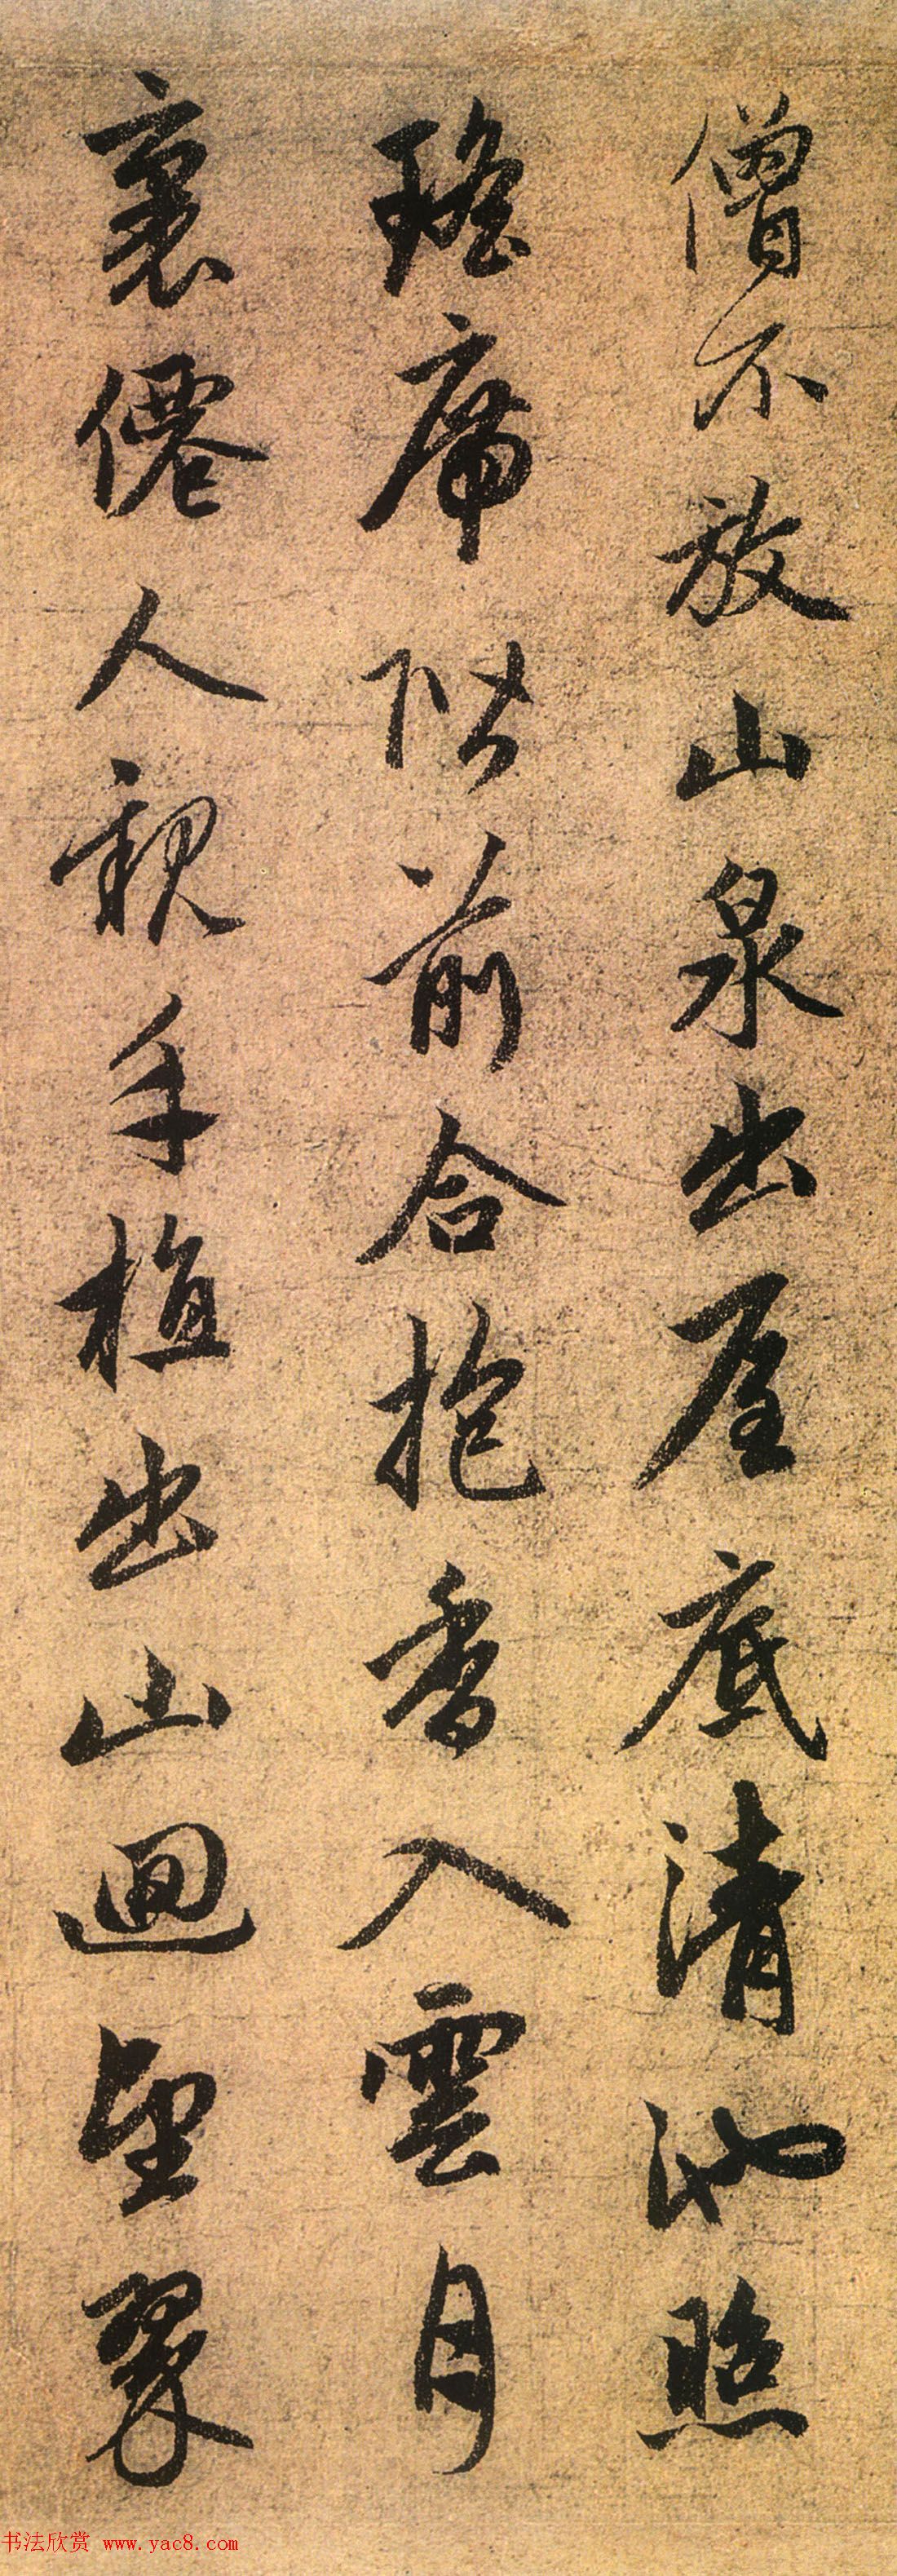 僧不放山泉出屋底清池照
瑤席階前合抱香入雲月
裏僊人親手植出山迴望翠
书法欣赏 www.yac8.com